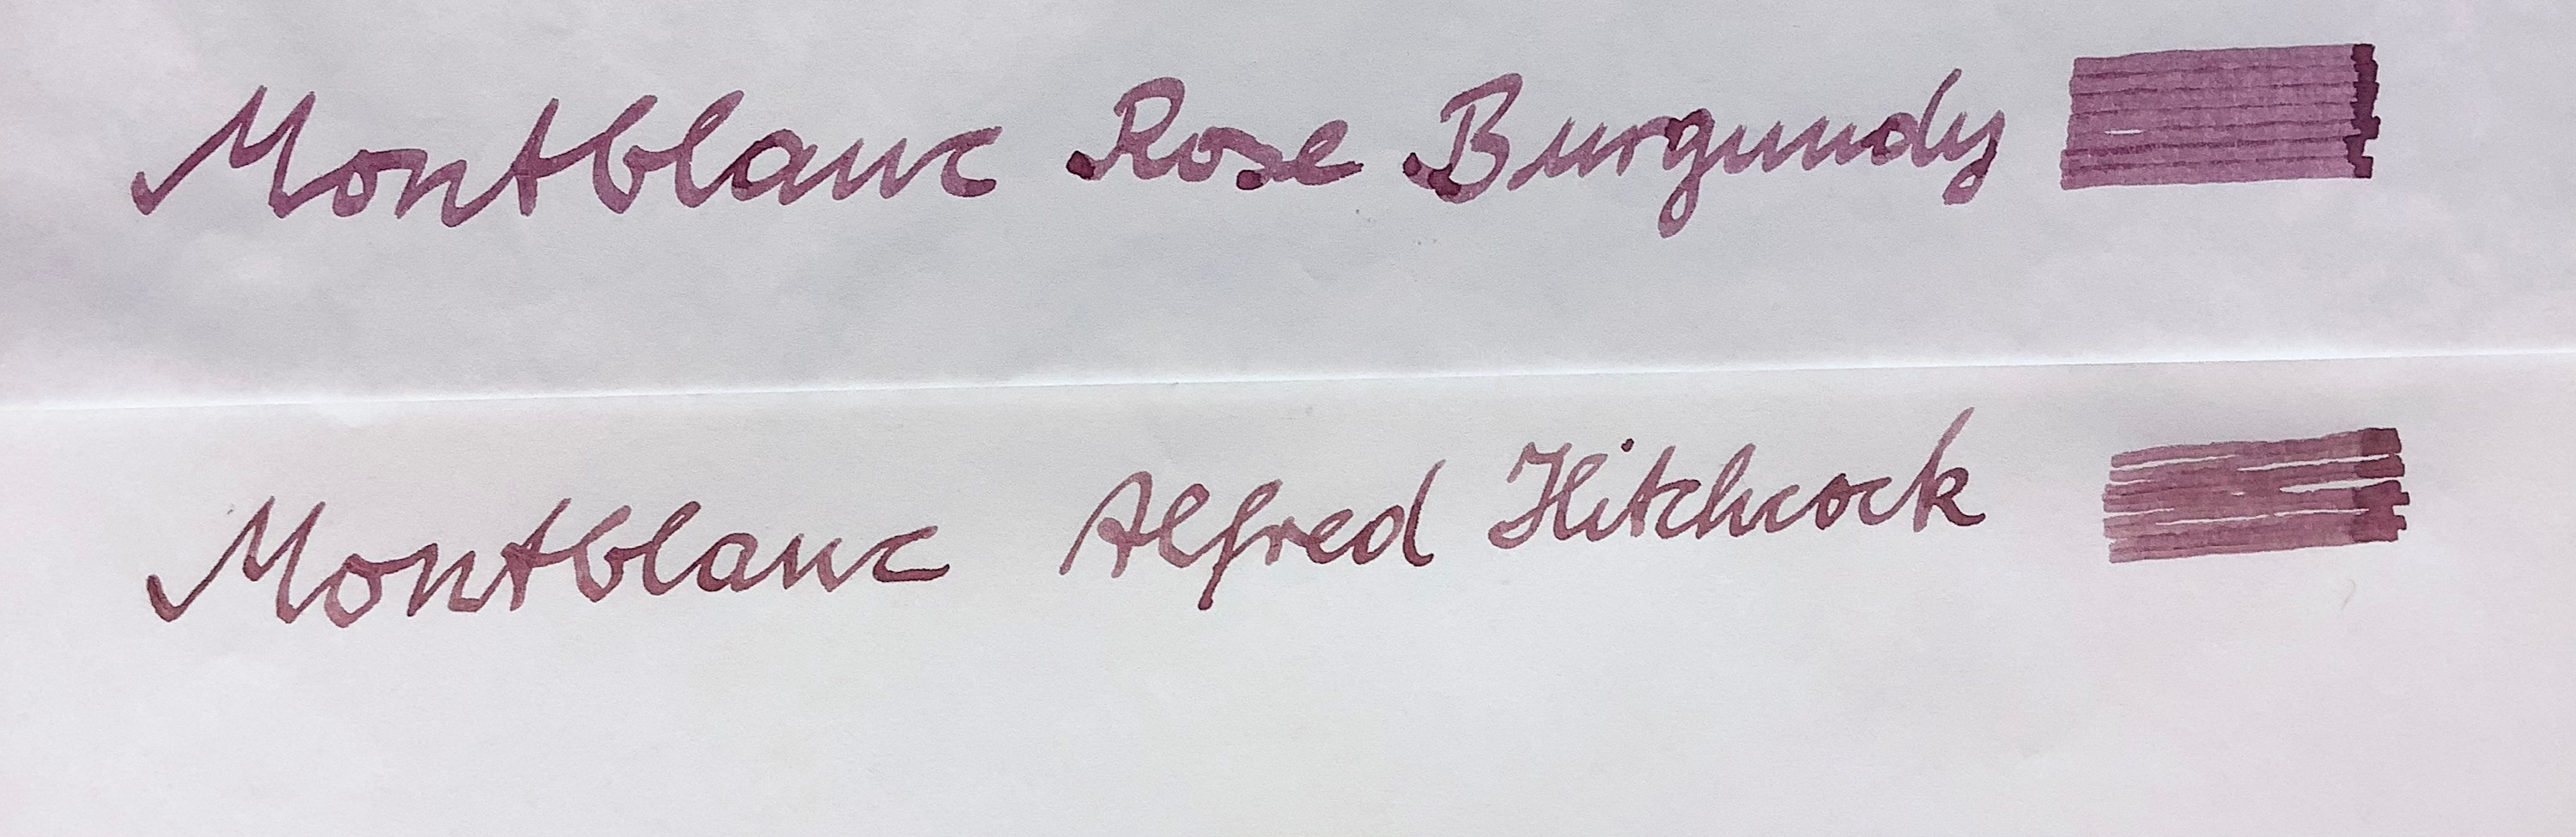 Montblanc Rose Burgundy
Montblanc Alfred Hitchcock